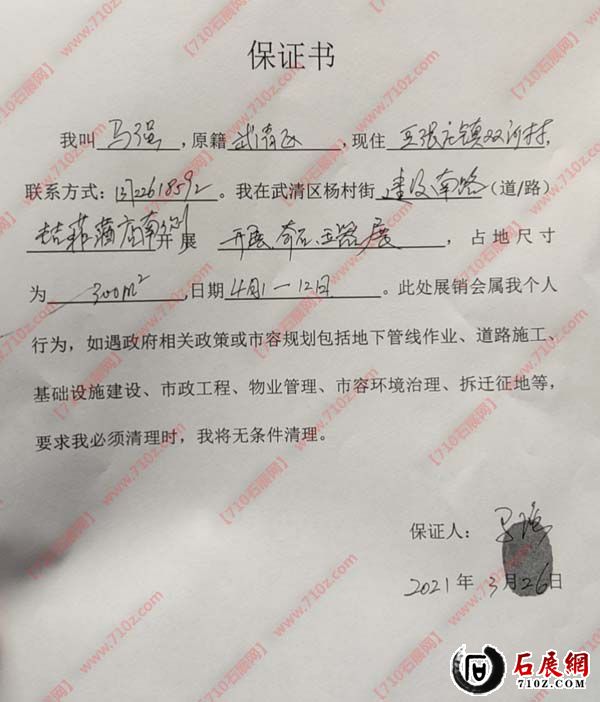 保证书
我叫 马强 ，原籍 武清区 ，现住 豆张庄镇双河村，
联系方式：13722618592 。我在武清区杨村街 建设南路（道/路）
南侧开展 开展、奇石、玉器展 ，占地尺寸
为 300m² ，日期 4月1—12日 。此处展销会属我个人
行为，如遇政府相关政策或市容规划包括地下管线作业、道路施工、
基础设施建设、市政工程、物业管理、市容环境治理、拆迁征地等，
要求我必须清理时，我将无条件清理。
保证人：马强
2021年 3月26日
【710石展网】www.710z.com
石展網
710Z.COM